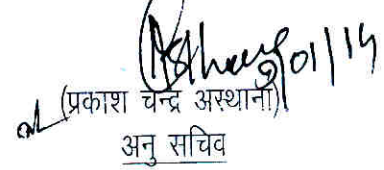 01/14
(प्रकाश चन्द्र अस्थाना)
अनु सचिव